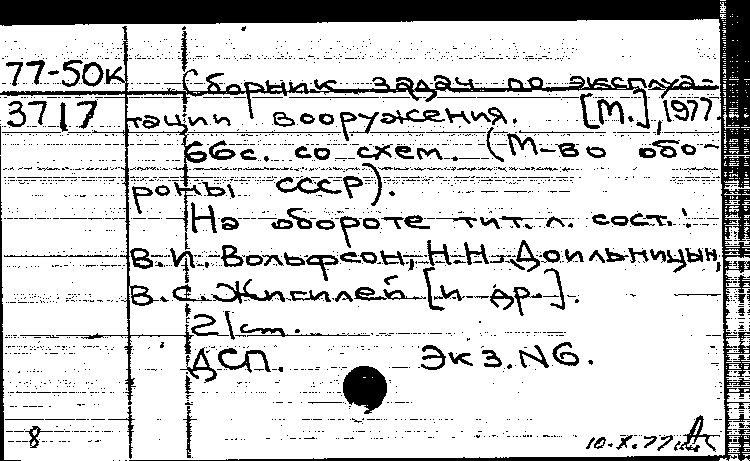 77-50к Сборник задач по эксплуа-
3717 тации вооружения. [М.], 1977.
66с. со схем. (М-во обо-
роны СССР).
На обороте тит. л. сост.:
В.И. Вольфсон, Н.Н. Доильницын,
В.С. Жигилей [и др.].
21cm.
ДСП. Экз. N6.
8 10.X.77